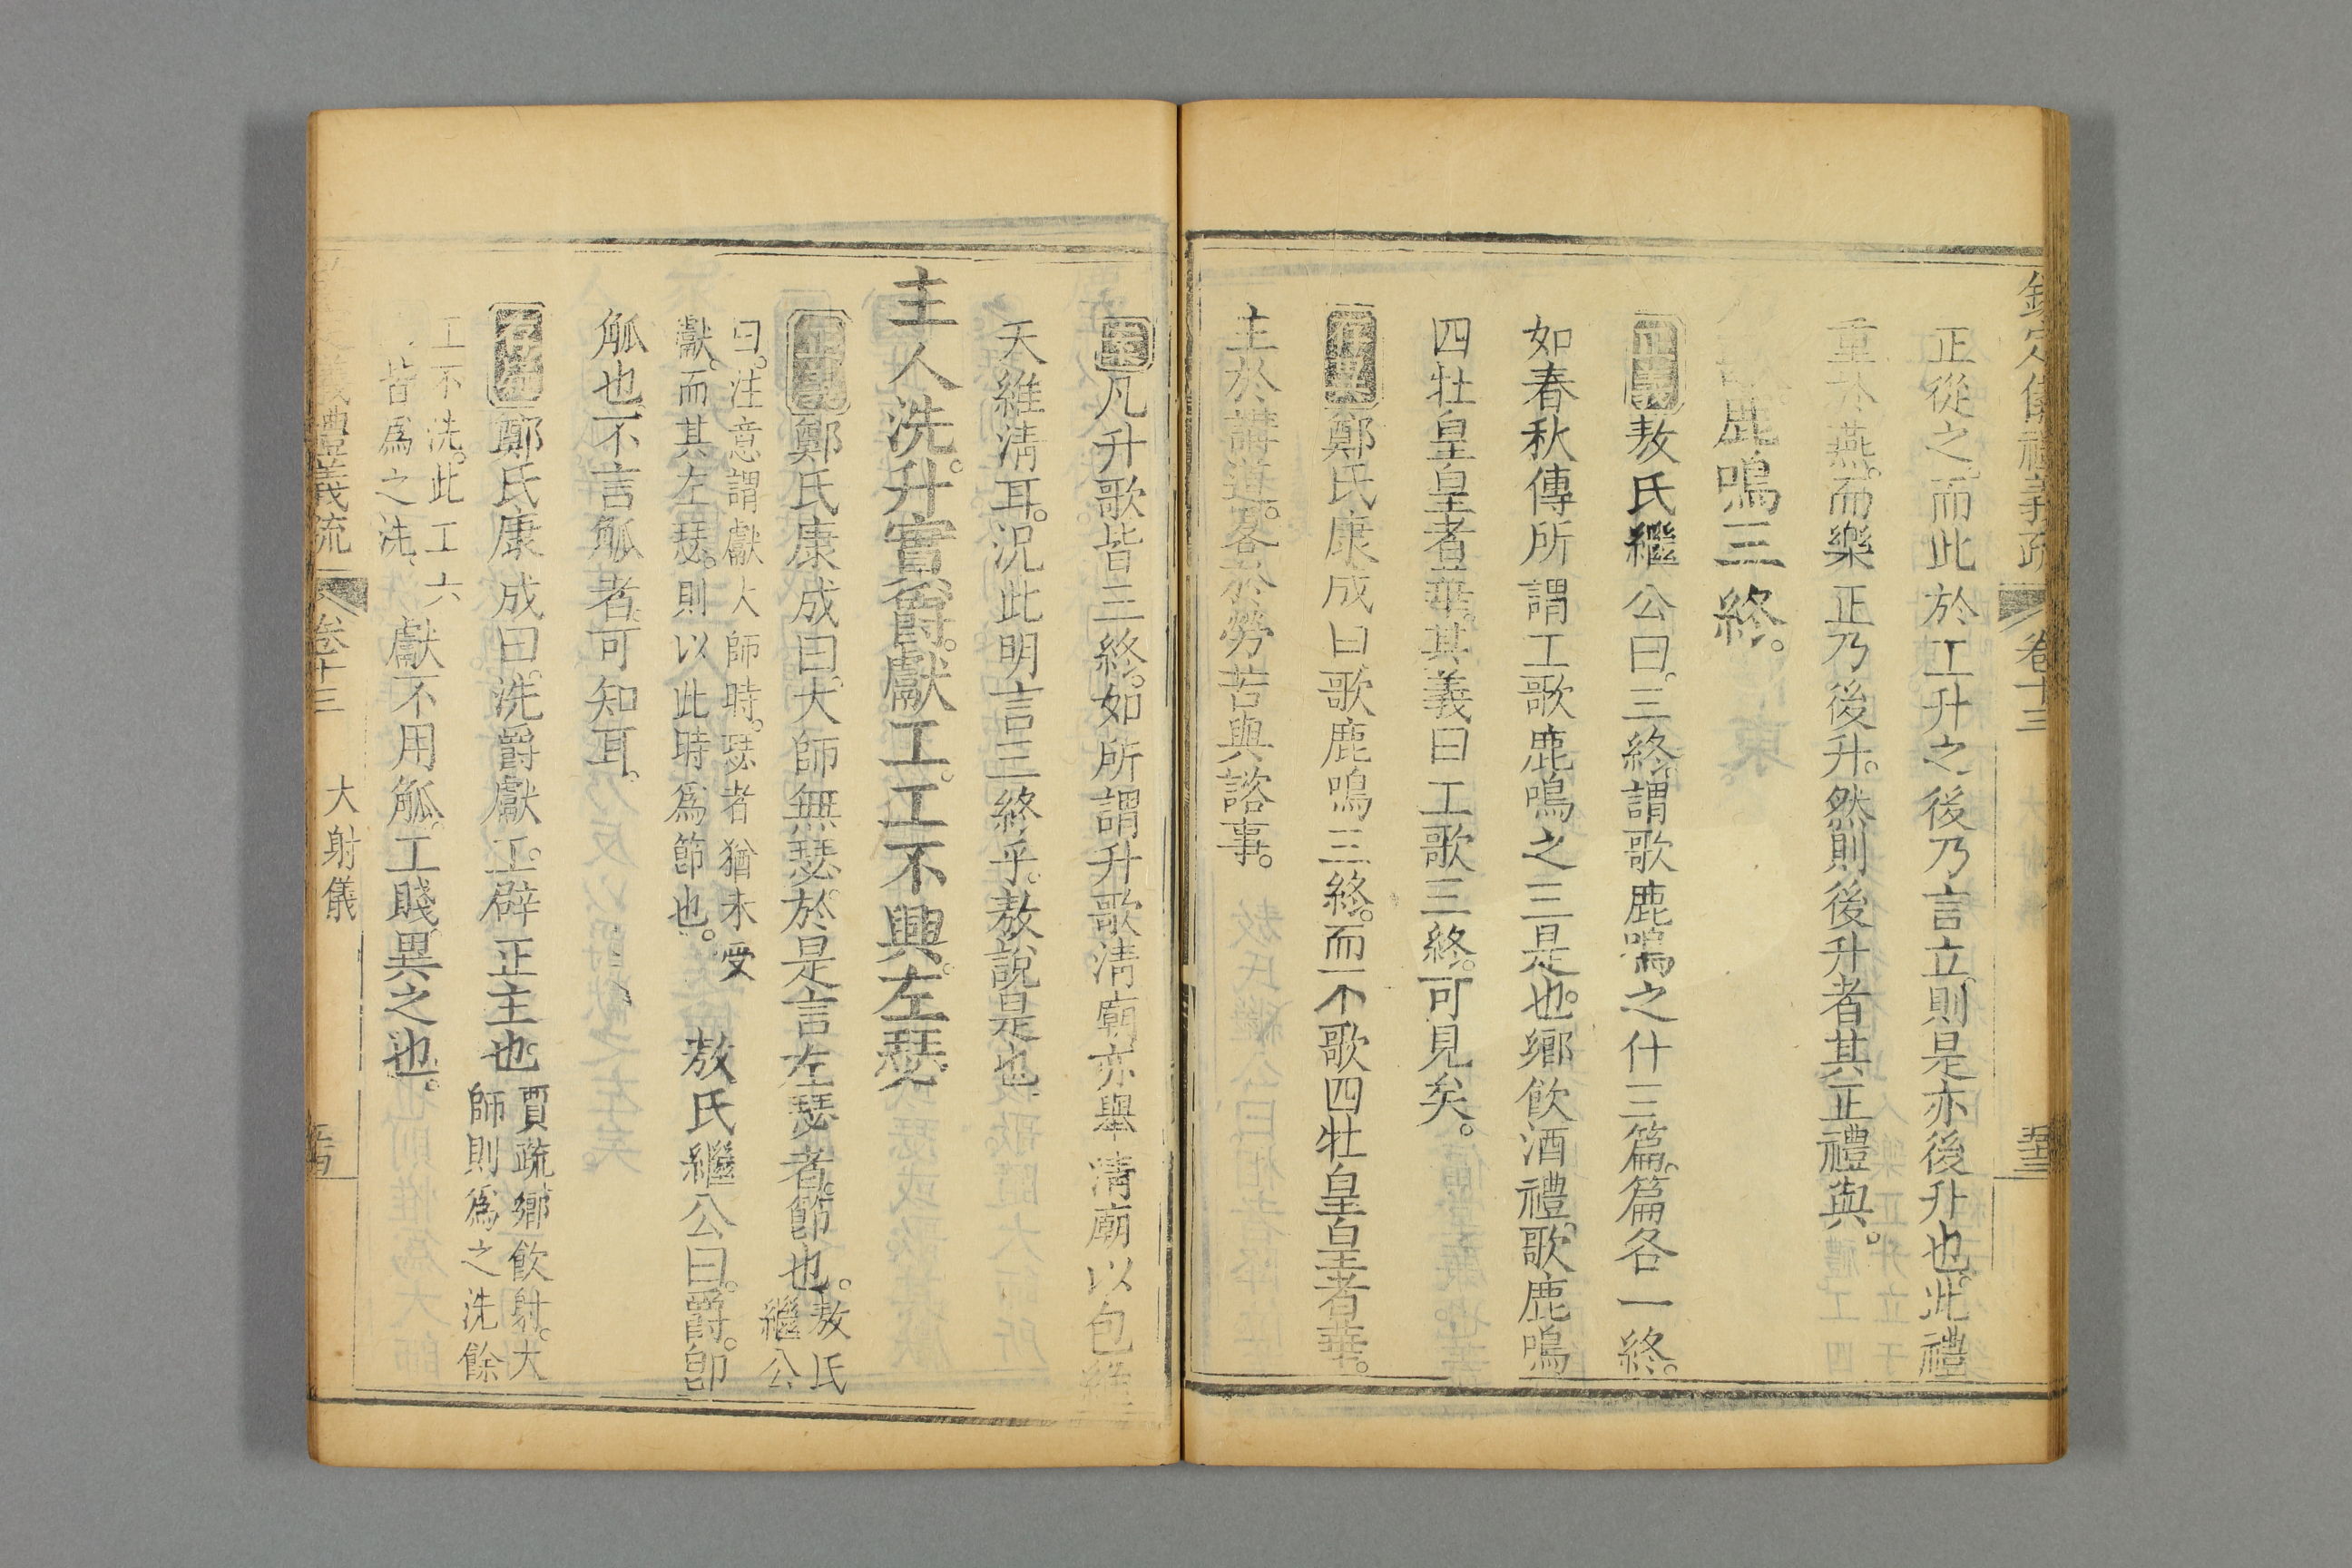 欽定儀禮義疏 卷十三
正從之而此於工升之後乃言立則是亦後升也此禮
重於燕而樂正乃後升然則後升者其正禮與
鹿鳴三終
正義敖氏繼公曰三終謂歌鹿鳴之什三篇篇各一終
如春秋傳所謂工歌鹿鳴之三是也鄉飲酒禮歌鹿鳴
四牡皇皇者華其義曰工歌三終可見矣
存異鄭氏康成曰歌鹿鳴三終而不歌四牡皇皇者華
主於講道畧於勞苦與諮事
案凡升歌皆三終如所謂升歌清廟亦舉清廟以包維
天維清耳況此明言三終乎敖說是也
主人洗升實爵獻工工不興左瑟
正義鄭氏康成曰大師無瑟於是言左瑟者節也
敖氏
繼公
曰注意謂獻大師時瑟者猶未受
獻而其左瑟則以此時為節也
敖氏繼公曰爵即
觚也不言觚者可知耳
存疑鄭氏康成曰洗爵獻工辟正主也
賈疏鄉飲射大
師則為之洗餘
工不洗此工六
皆為之洗
獻不用觚工賤異之也
禮義疏 卷十三 大射儀